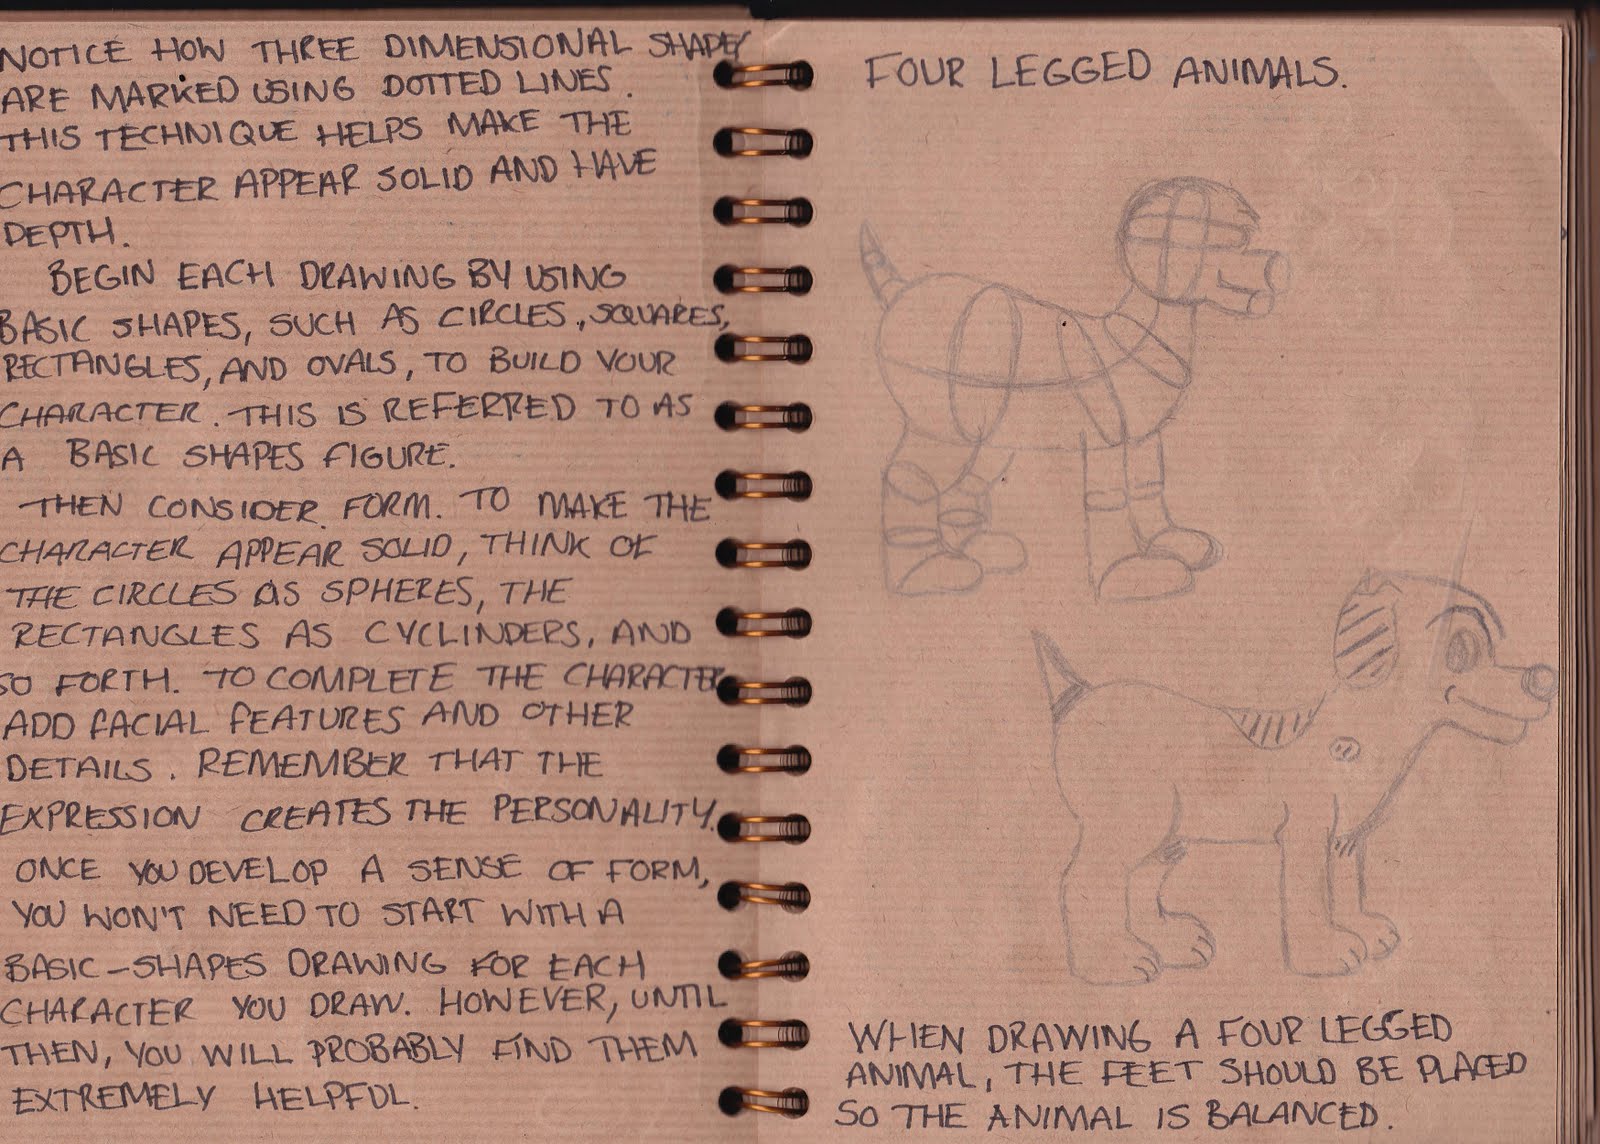 NOTICE HOW THREE DIMENSIONAL SHAPES
ARE MARKED USING DOTTED LINES.
THIS TECHNIQUE HELPS MAKE THE
CHARACTER APPEAR SOLID AND HAVE
DEPTH.
BEGIN EACH DRAWING BY USING
BASIC SHAPES, SUCH AS CIRCLES, SQUARES,
RECTANGLES, AND OVALS, TO BUILD YOUR
CHARACTER. THIS IS REFERRED TO AS
A BASIC SHAPES FIGURE.
THEN CONSIDER FORM. TO MAKE THE
CHARACTER APPEAR SOLID, THINK OF
THE CIRCLES AS SPHERES, THE
RECTANGLES AS CYCLINDERS, AND
SO FORTH. TO COMPLETE THE CHARACTER
ADD FACIAL FEATURES AND OTHER
DETAILS. REMEMBER THAT THE
EXPRESSION CREATES THE PERSONALITY.
ONCE YOU DEVELOP A SENSE OF FORM,
YOU WON'T NEED TO START WITH A
BASIC-SHAPES DRAWING FOR EACH
CHARACTER YOU DRAW. HOWEVER, UNTIL
THEN, YOU WILL PROBABLY FIND THEM
EXTREMELY HELPFUL.
FOUR LEGGED ANIMALS.
WHEN DRAWING A FOUR LEGGED
ANIMAL, THE FEET SHOULD BE PLACED
SO THE ANIMAL IS BALANCED.